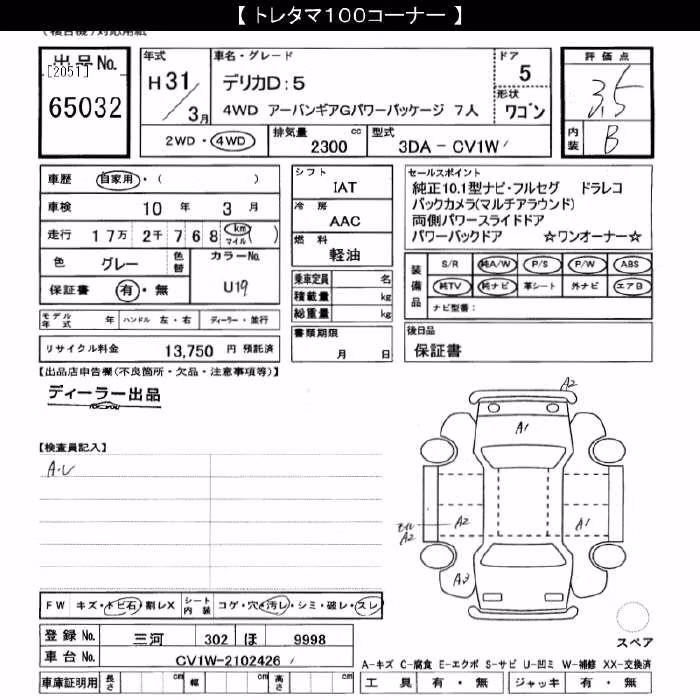 【 トレタマ100コーナー 】
出品No.
[2051]
65032
年式
H 31 / 3月
車名・グレード
デリカD:5
4WD アーバンギアGパワーパッケージ 7人
ドア
5
形状
ワゴン
評価点
3.5
内装
B
2WD・4WD
排気量
2300 cc
型式
3DA - CV1W
車歴 自家用・( )
車検 10 年 3 月
走行 17万 2千 7 6 8 ( km マイル )
色 グレー 色替
カラーNo.
U19
保証書 有・無
モデル年式 年 ハンドル 左・右 ディーラー・並行
リサイクル料金 13,750 円 預託済
シフト
IAT
冷房
AAC
燃料
軽油
乗車定員 名
積載量 kg
総重量 kg
書類期限
月 日
セールスポイント
純正10.1型ナビ・フルセグ ドラレコ
バックカメラ(マルチアラウンド)
両側パワースライドドア
パワーバックドア ☆ワンオーナー☆
装備品
S/R 純A/W P/S P/W ABS
純TV 純ナビ 革シート 外ナビ エアB
ナビ型番:
後日品
保証書
【出品店申告欄(不良箇所・欠品・注意事項等)】
ディーラー出品
【検査員記入】
A・U
A2
A1
A2
A2
A1
A2
FW キズ・トビ石・割レX シート内装 コゲ・穴・汚レ・シミ・破レ・スレ
登録No. 三河 302 ほ 9998
車台No. CV1W-2102426
車庫証明用 長さ cm 幅 cm 高さ cm
スペア
A-キズ C-腐食 E-エクボ S-サビ U-凹ミ W-補修 XX-交換済
工具 有・無 ジャッキ 有・無